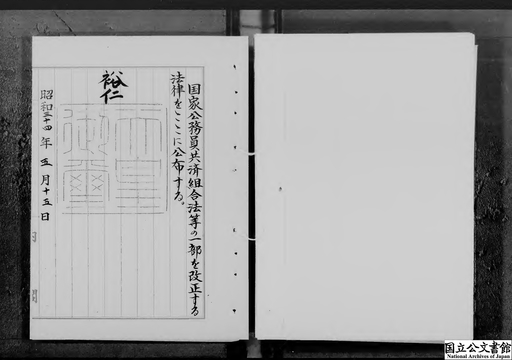 国家公務員共済組合法等の一部を改正する
法律をここに公布する。
裕仁
天皇
御璽
昭和三十四年五月十五日
国立公文書館
National Archives of Japan